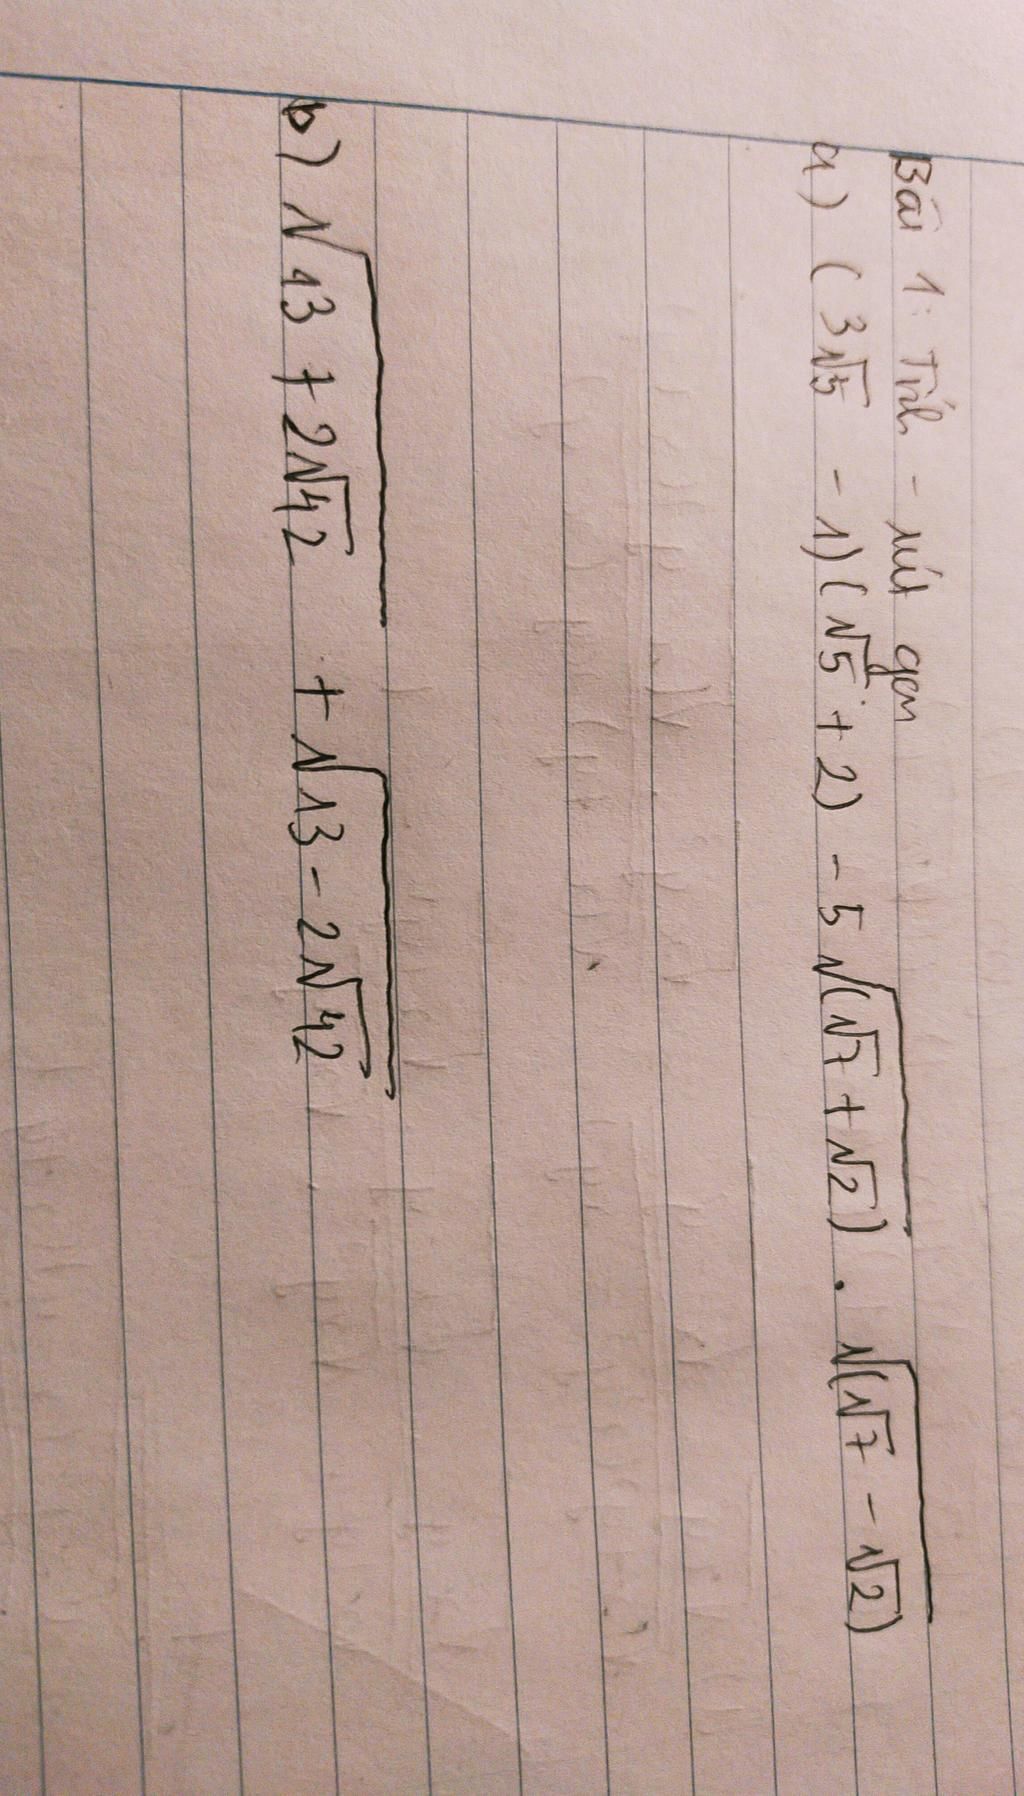 Bài 1: Tính - rút gọn
a) (3√5 - 1)(√5 + 2) - 5√(√7 + √2) . √(√7 - √2)
b) √13 + 2√42 + √13 - 2√42